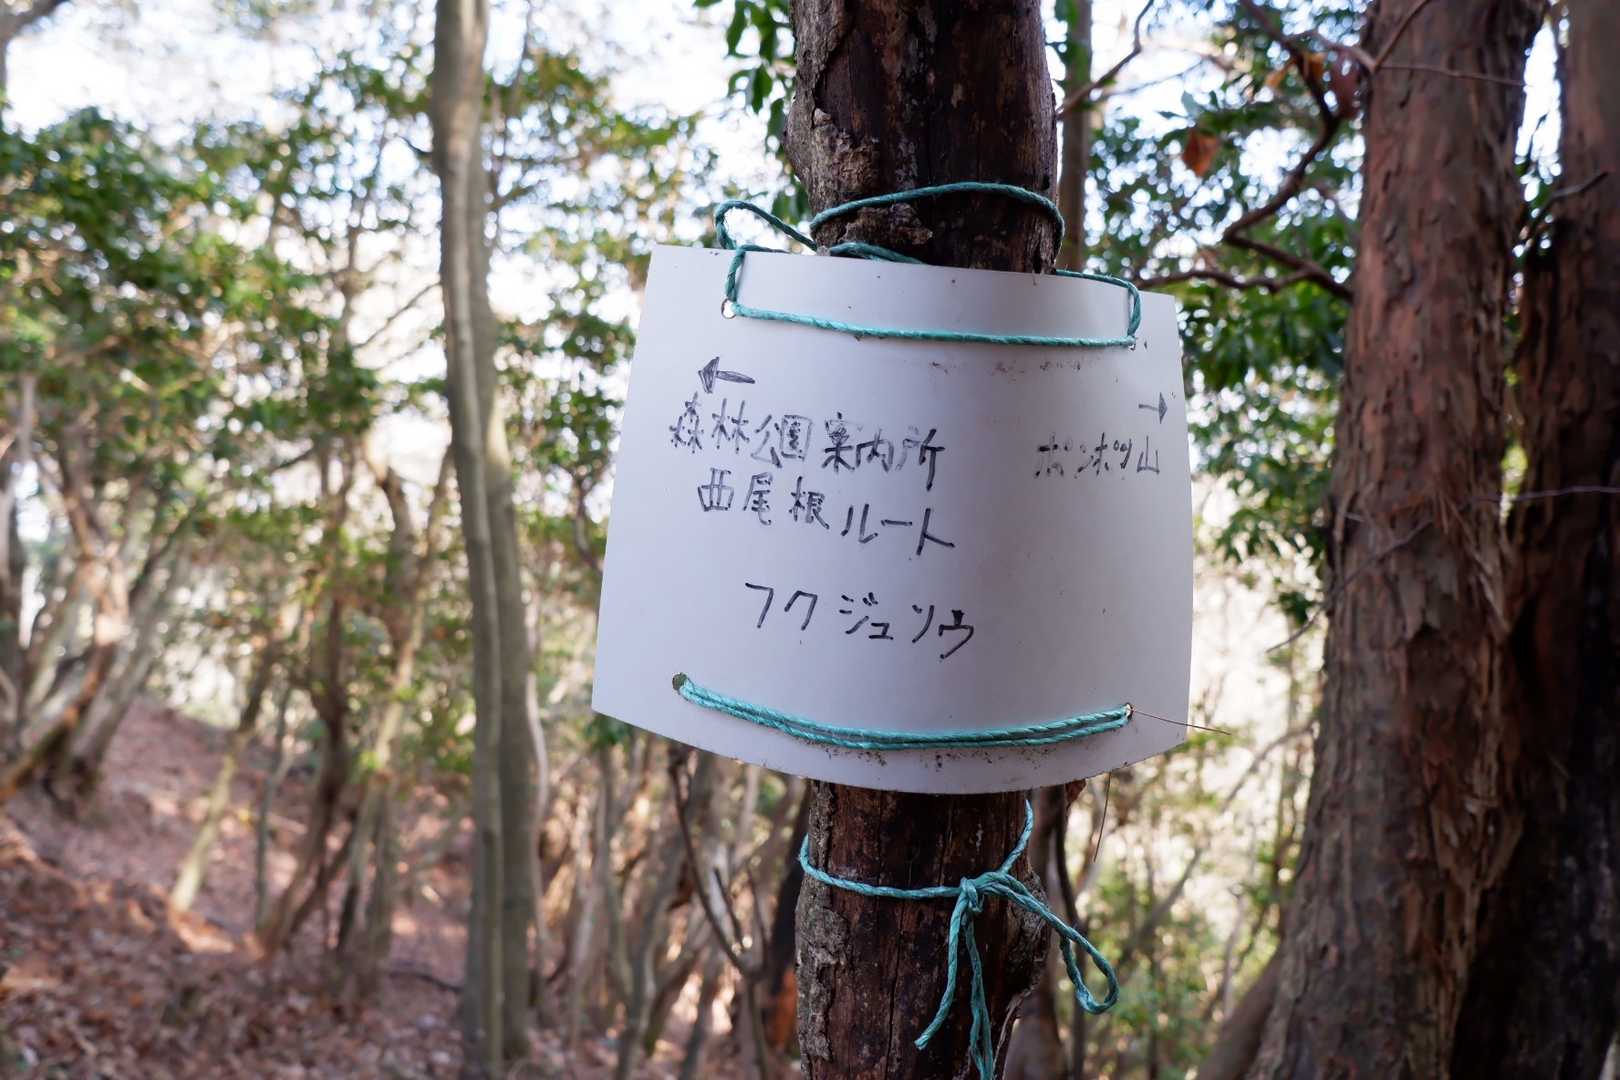 ←
森林公園案内所
西尾根ルート
フクジュソウ
→
ポンポン山